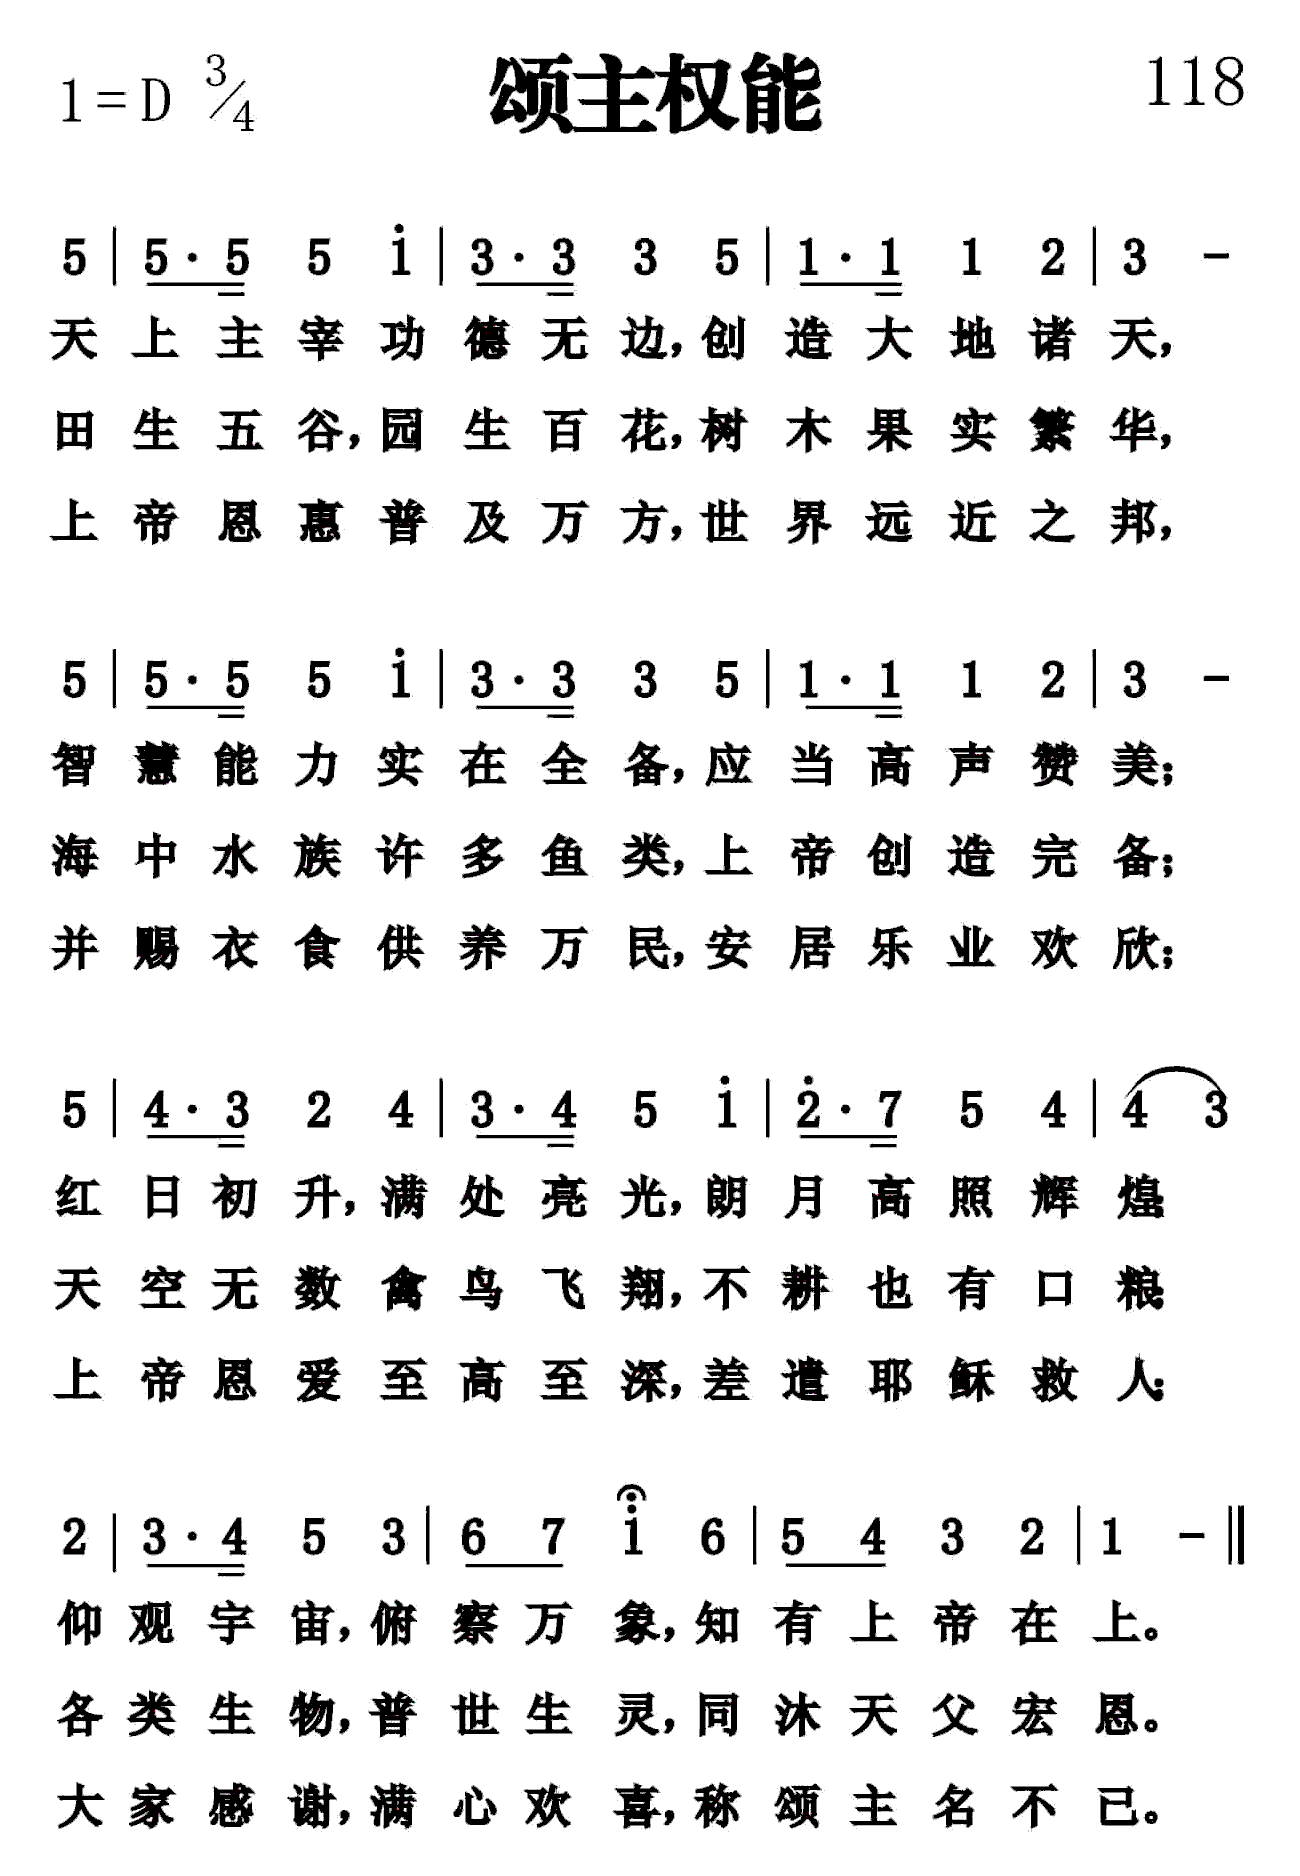 1=D 3/4 颂主权能 118
5 | 5·5 5 i | 3·3 3 5 | 1·1 1 2 | 3 -
天上主宰功德无边，创造大地诸天，
田生五谷，园生百花，树木果实繁华，
上帝恩惠普及万方，世界远近之邦，
5 | 5·5 5 i | 3·3 3 5 | 1·1 1 2 | 3 -
智慧能力实在全备，应当高声赞美；
海中水族许多鱼类，上帝创造完备；
并赐衣食供养万民，安居乐业欢欣；
5 | 4·3 2 4 | 3·4 5 i | 2·7 5 4 | 4 3
红日初升，满处亮光，朗月高照辉煌；
天空无数禽鸟飞翔，不耕也有口粮；
上帝恩爱至高至深，差遣耶稣救人；
2 | 3·4 5 3 | 6 7 i 6 | 5 4 3 2 | 1 - ‖
仰观宇宙，俯察万象，知有上帝在上。
各类生物，普世生灵，同沐天父宏恩。
大家感谢，满心欢喜，称颂主名不已。